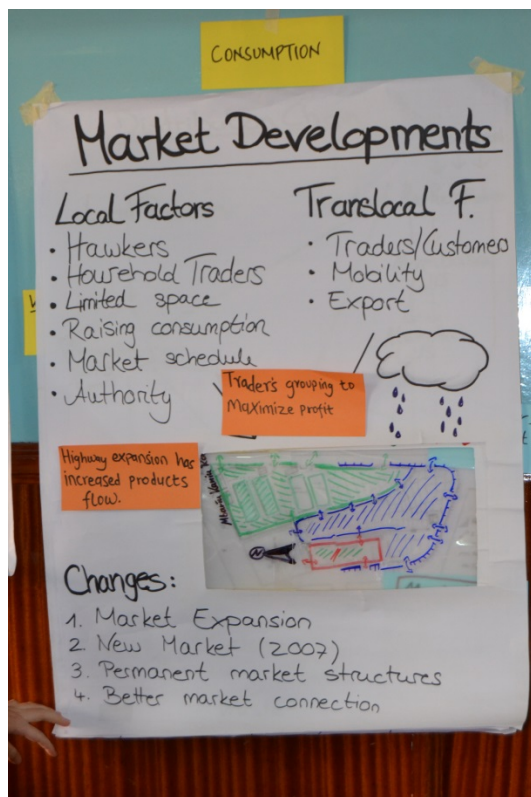 CONSUMPTION
Market Developments
Local Factors
• Hawkers
• Household Traders
• Limited space
• Raising consumption
• Market schedule
• Authority
Translocal F.
• Traders/Customers
• Mobility
• Export
Trader's grouping to
Maximize profit
Highway expansion has
increased products
flow.
N
Changes:
1. Market Expansion
2 New Market (2007)
3. Permanent market structures
4. Better market connection